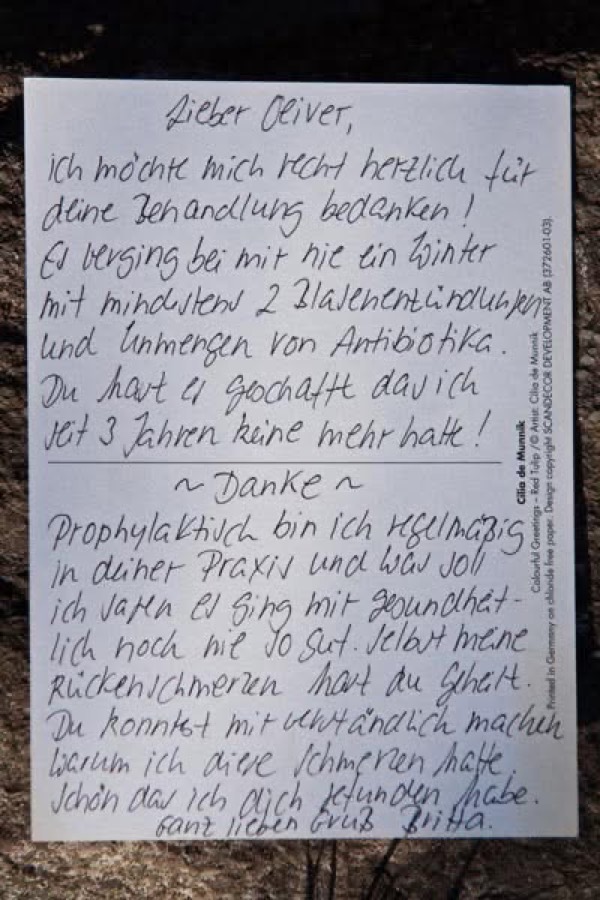 Lieber Oliver,
ich möchte mich recht herzlich für
deine Behandlung bedanken!
Es verging bei mir nie ein Winter
mit mindestens 2 Blasenentzündungen
und Unmengen von Antibiotika.
Du hast es geschafft das ich
seit 3 Jahren keine mehr hatte!
~ Danke ~
Prophylaktisch bin ich regelmäßig
in deiner Praxis und was soll
ich sagen es ging mir gesundheit-
lich noch nie so gut. Selbst meine
Rückenschmerzen hast du geheilt.
Du konntest mir verständlich machen
warum ich diese Schmerzen hatte
Schön das ich dich gefunden habe.
Ganz lieben Gruß Britta.
Cilia de Munnik
Colourful Greetings – Red Tulip / © Artist: Cilia de Munnik
Printed in Germany on chloride free paper. Design copyright SCANDECOR DEVELOPMENT AB (372601-03).